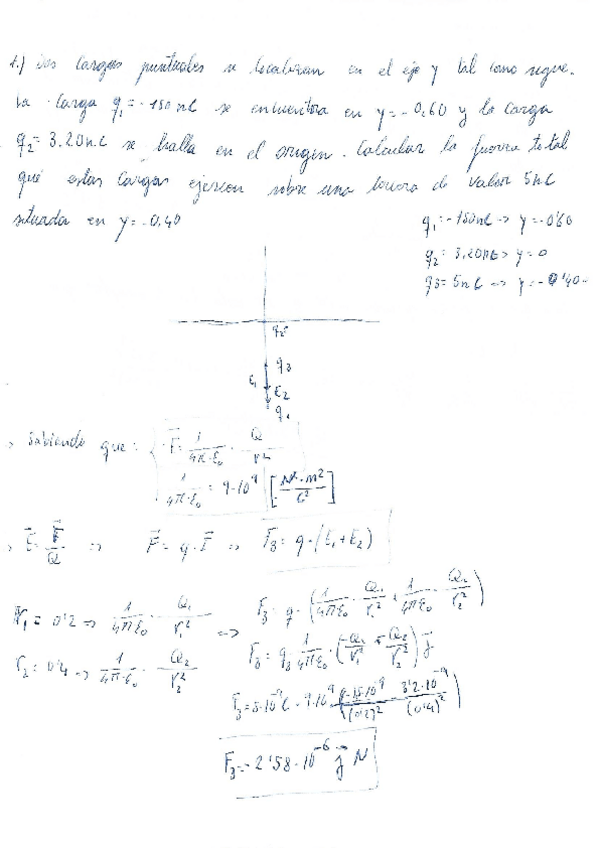 1.) Dos cargas puntuales se localizan en el eje y tal como sigue.
La carga q₁ = -150 nC se encuentra en y = -0,60 y la carga
q₂ = 3.20 nC se halla en el origen. Calcular la fuerza total
que estas cargas ejercen sobre una tercera de valor 5nC
situada en y = -0,40
q₁ = -150nC -> y = -0'60
q₂ = 3,20nC -> y = 0
q3 = 5nC -> y = -0'40
q₂
q₃
E₁
E₂
q₁
Sabiendo que:
F = 1/4π·ε₀ · Q/r²
1/4π·ε₀ = 9·10⁹ [N·m²/C²]
E = F/Q => F = q·E => F₃ = q·(E₁+E₂)
r₁ = 0'2 => 1/4πε₀ · Q₁/r₁²
r₂ = 0'4 => 1/4π·ε₀ · Q₂/r₂²
=> F₃ = q·(1/4πε₀ · Q₁/r₁² + 1/4πε₀ · Q₂/r₂²)
F₃ = q₃ 1/4πε₀ · j
F₃ = 5·10⁻⁹C · 9·10⁹ /(0'2)² - 3'2·10⁻⁹/(0'4)²)
F₃ = -2'58·10⁻⁶ j N